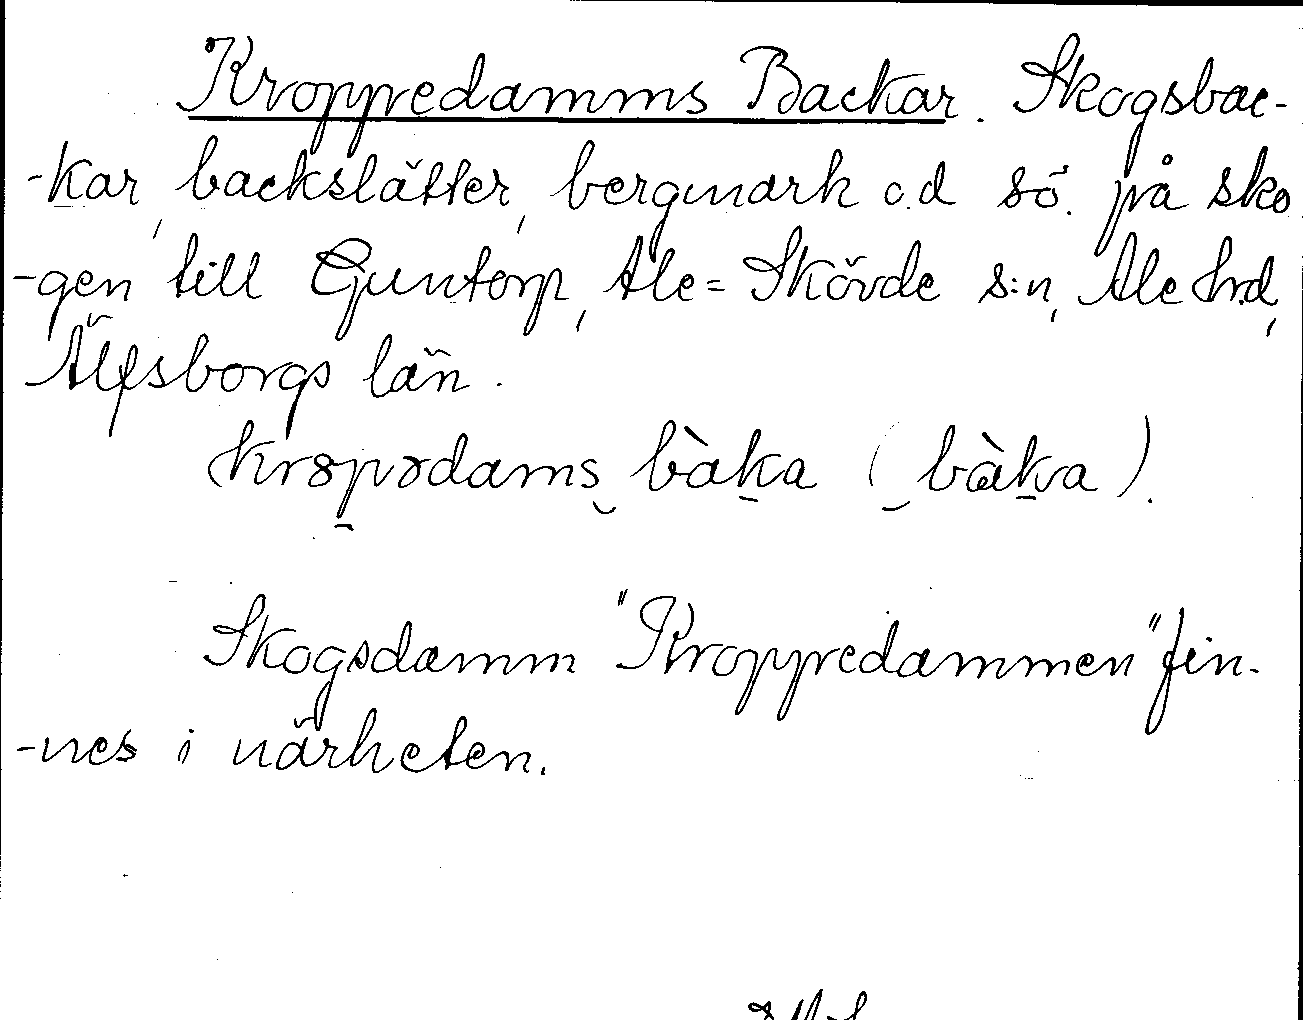 Kroppedamms Backar. Skogsbac-
-kar, backslätter, bergmark o.d sö. på sko
-gen till Guntorp, Ale=Skövde s:n, Ale hrd,
Älfsborgs län.
bàka (bàkra).
Skogsdamm "Kroppedammen" fin-
-nes i närheten.